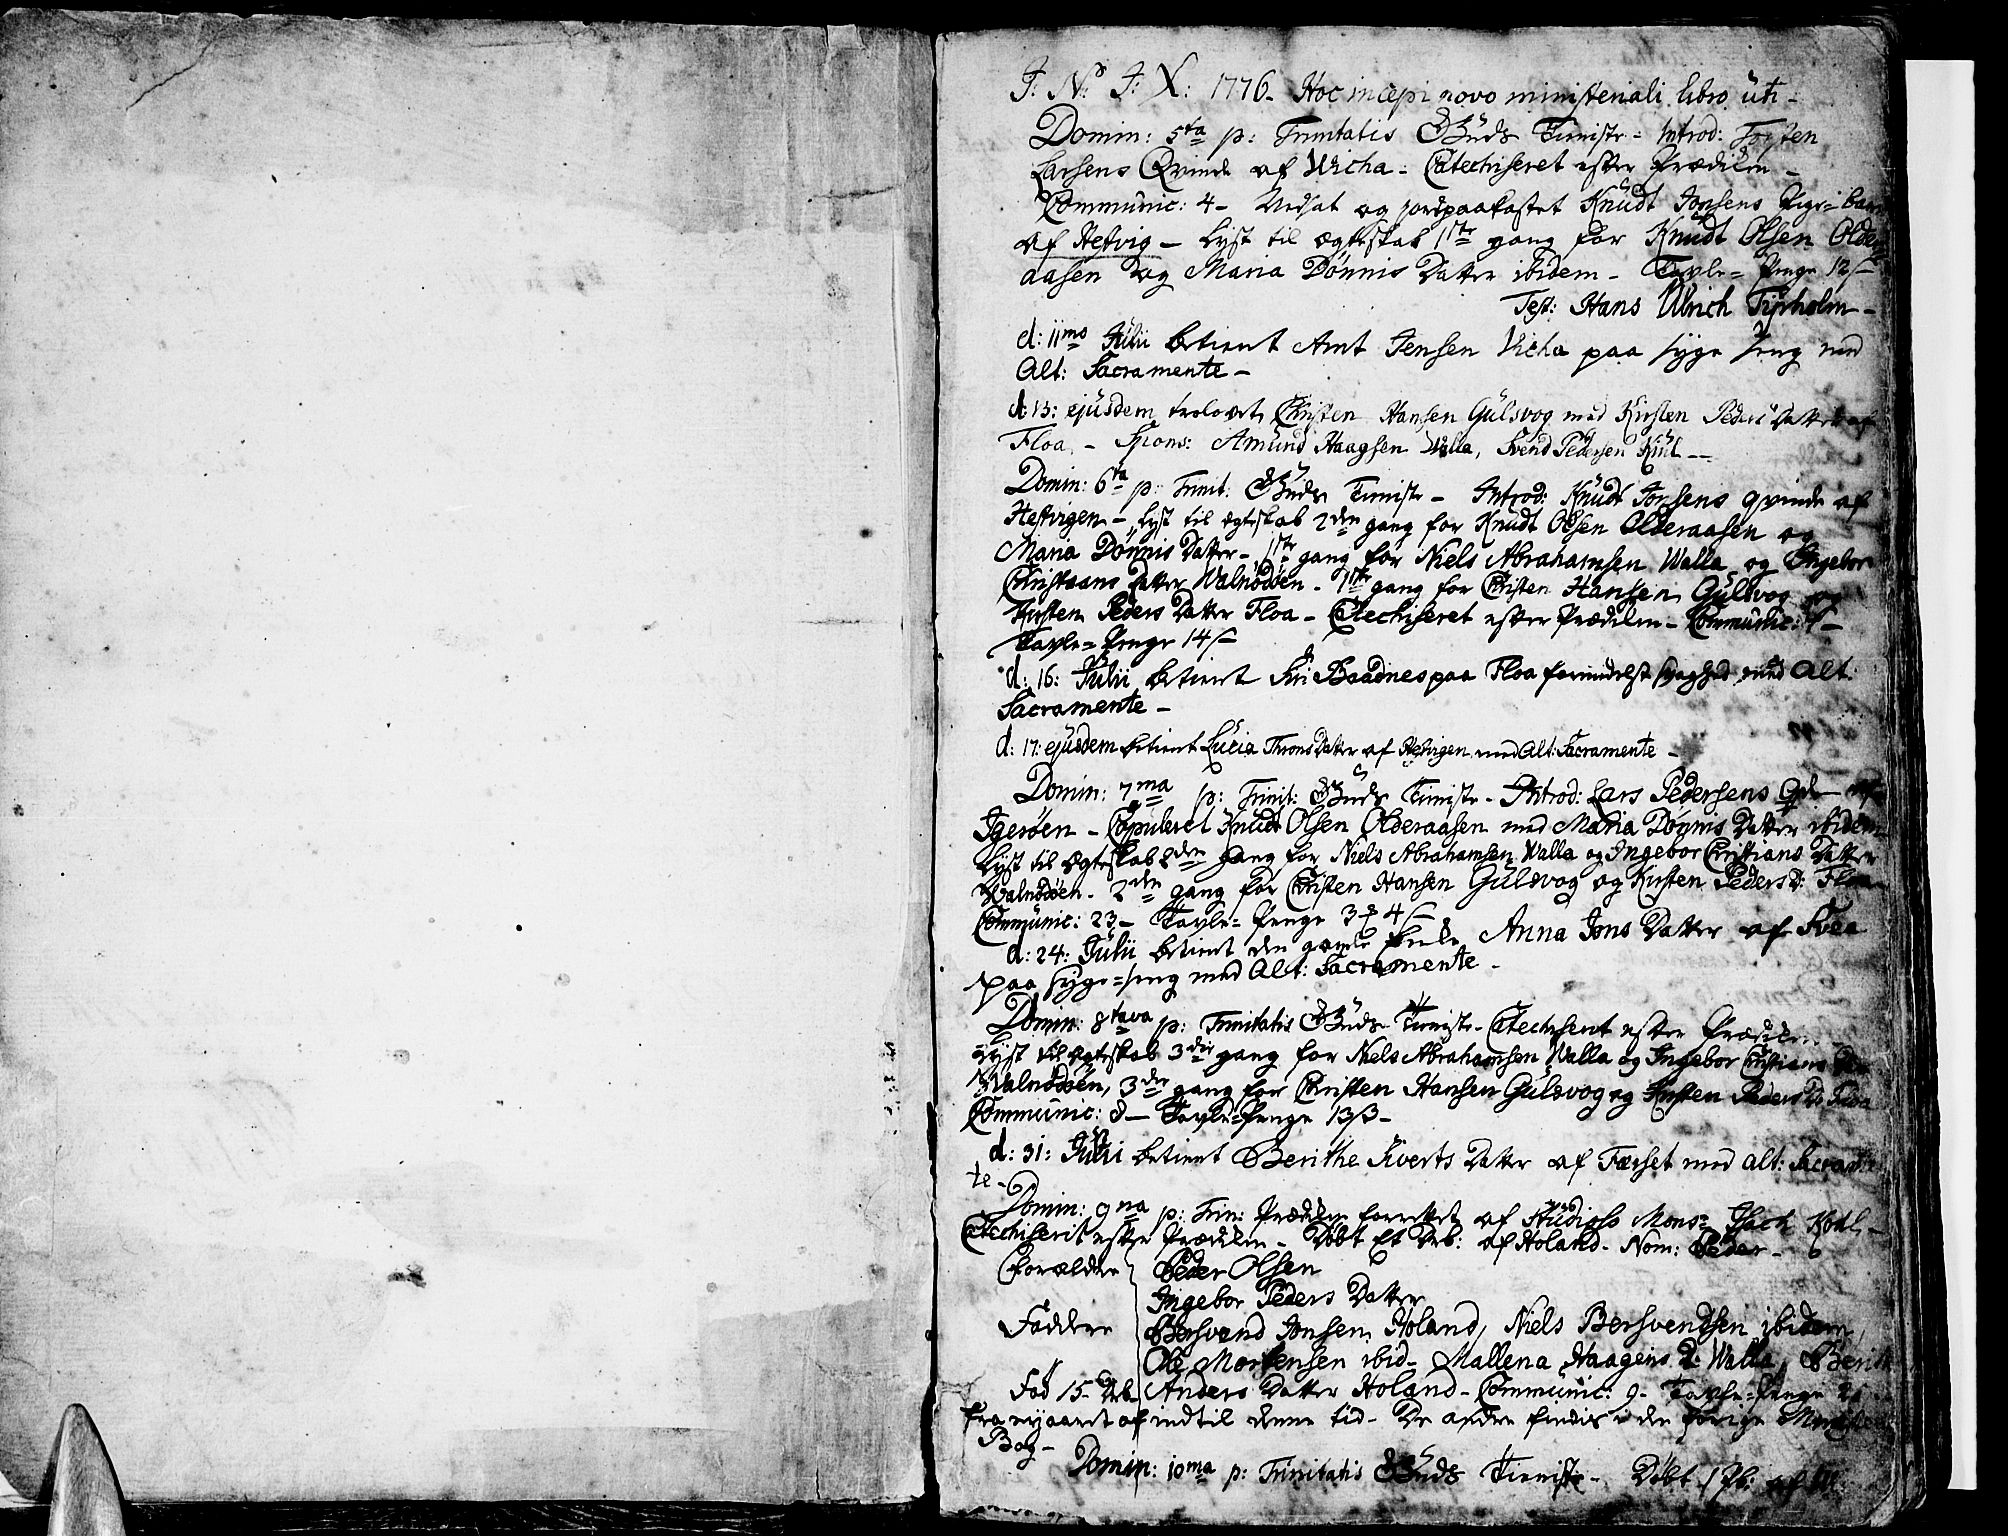 J: N: J: X: 1776. Hoc incepi novo ministeriali libro uti -
Domin: 5ta p: Trinitatis Guds Tieniste - Introd: Torsten
Larsens Qvinde af Wicha - Catechiseret efter Prædiken -
Communic: 4 - Udsat og jordpaakastet Knudt Jonsens
af Hestvig - Lyst til Ægteskab 1ste gang for Knudt Olsen Older
aasen og Maria Dønnis Datter ibidem - Tavle = Penge 12 ß
Test: Hans Ulrich Tyrholm -
d: 11mo Julii betient Arnt Jensen Vicha paa syge seng med
Alt: Sacramente -
d: 13: ejusdem trolovet Christen Hansen Gulsvog med Kirsten Peders Datter af
Floa. - Spons: Amund Haagsen Walla, Svend Pedersen
Domin: 6ta p: Trinit: Guds Tieniste - Introd: Knudt Jonsens qvinde af
Hestvigen - Lyst til ægteskab 2den gang for Knudt Olsen Olderaasen og
Maria Dønnis Datter - 1ste gang for Niels Abrahamsen Walla og Ingebor
Christians Datter Walnødøen - 1ste gang for Christen Hansen Gulsvog og
Kirsten Peders Datter Floa - Catechiseret efter Prædiken - Communic:
Tavle = Penge 14 ß
d: 16: Julii betient Siri Baadnes paa Floa formedelst svaghed med Alt:
Sacramente -
d: 17: ejusdem betient Lucia Throns Datter af Hestvigen med Alt: Sacramente -
Domin: 7ma p: Trinit: Guds Tieniste - Introd: Lars Pedersens Qv: af
Igerøen - Copuleret Knudt Olsen Olderaasen med Maria Dønnis Datter ibidem
Lyst til Ægteskab 2den gang for Niels Abrahamsen Walla og Ingebor Christians Datter
Walnødøen - 2den gang for Christen Hansen Gulsvog og Kirsten Peders D: Floa
Communic: 23 - Tavle = Penge 3 4 ß
d: 24: Julii betient den gamle Anna Jons Datter af
paa syge = seng med Alt: Sacramente -
Domin: 8tava p: Trinitatis Guds Tieniste - Catechiseret efter Prædiken
Lyst til ægteskab 3die gang for Niels Abrahamsen Walla og Ingebor Christians
Walnødøen, 3die gang for Christen Hansen Gulsvog og Kirsten Peders D: Floa
Communic: 8 - Tavle = Penge 13 ß -
d: 31: Julii betient Berithe Siverts Datter af Færset med Alt: Sacramen
te -
Domin: 9na p: Trin: Prædiken forrettet af Studioso Mons: Isach
Catechiseret efter Prædiken - Døbt Et Drb: af Holand - Nom: Peder -
Forældre Peder Olsen
Ingebor Peders Datter
Faddere Bersvend Jonsen Holand, Niels Bersvendsen ibidem,
Ole Mortensen ibid - Mallena Haagens D: Walla, Berit
Fød 15 Anders Datter Holand - Communic: 9 - Tavle = Penge
fra nyaaret af indtil denne tid - De andre findis i den forige Ministerial
Bog -
Domin: 10ma p: Trinitatis Guds Tieniste - Døbt 1 af